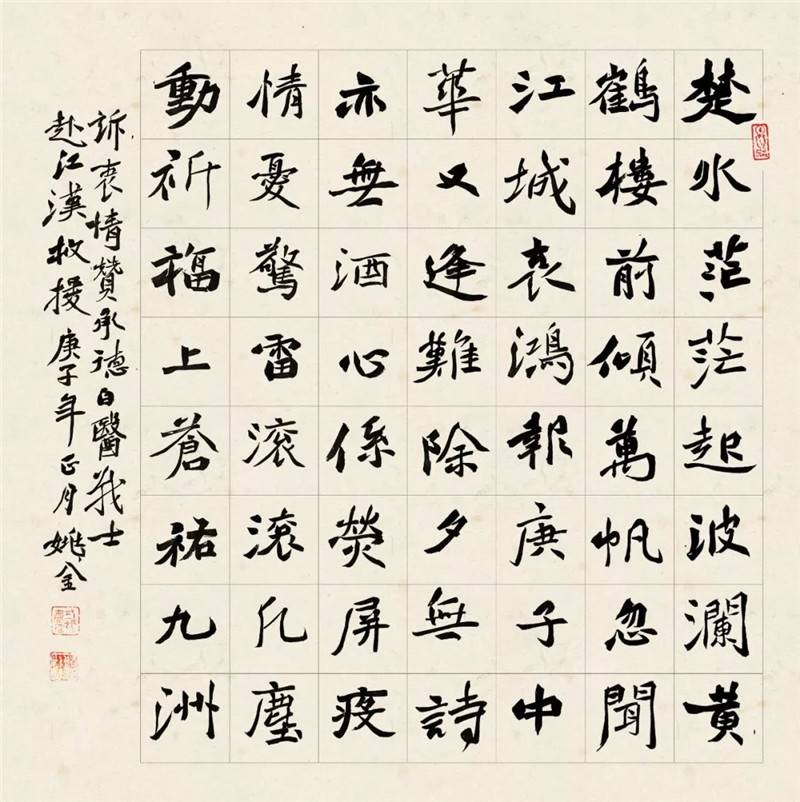 楚水茫茫起波瀾黄
鶴樓前傾萬帆忽聞
江城哀鴻報庚子中
華又逢難除夕無詩
亦無酒心係熒屏疫
情憂驚雷滚滚凡塵
動祈福上蒼祐九洲
訴衷情贊承德白醫義士
赴江漢救援庚子年正月姚金